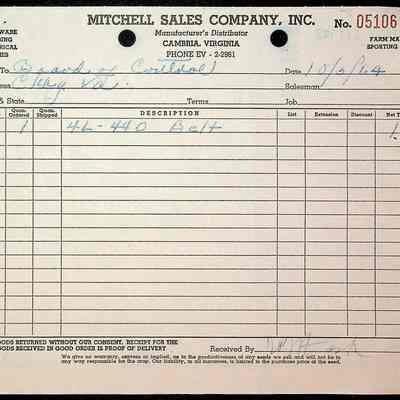 MITCHELL SALES COMPANY, INC. No. 05106
WARE Manufacturer's Distributor FARM MA
CAMBRIA, VIRGINIA SPORTING
PHONE EV - 2-2961
To Board of Control Date 10/2/64
Va. Salesman
& State Terms Job
Quan. Ordered Quan. Shipped DESCRIPTION List Extension Discount Net T
1 4L-440 Belt 1
OODS RETURNED WITHOUT OUR CONSENT. RECEIPT FOR THE
OODS RECEIVED IN GOOD ORDER IS PROOF OF DELIVERY Received By
We give no warranty, express or implied, as to the productiveness of any seeds we sell and will not be in
any way responsible for the crop. Our liability, in all instances, is limited to the purchase price of the seed.